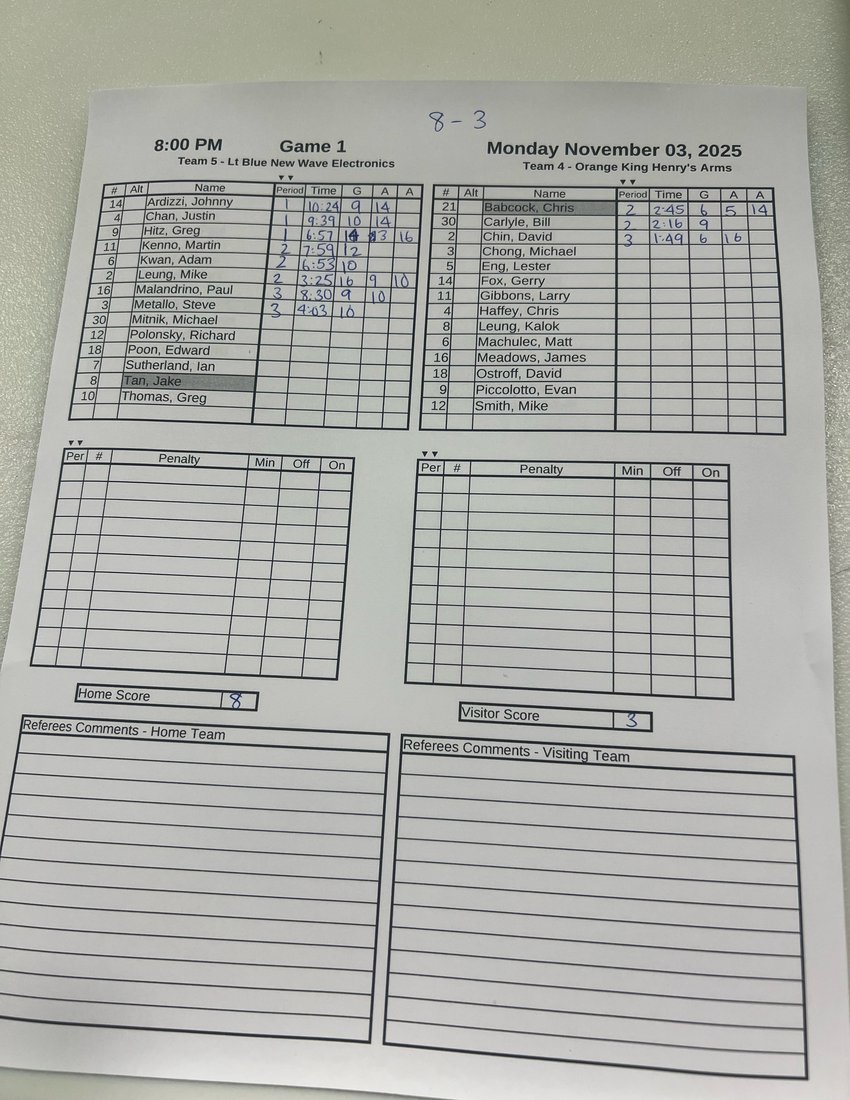 8 - 3
8:00 PM Game 1 Monday November 03, 2025
Team 5 - Lt Blue New Wave Electronics
Team 4 - Orange King Henry's Arms
# Alt Name Period Time G A A
14 Ardizzi, Johnny 1 10:24 9 14
4 Chan, Justin 1 9:39 10 14
9 Hitz, Greg 1 6:57 14 13 16
11 Kenno, Martin 2 7:59 12
6 Kwan, Adam 2 6:53 10
2 Leung, Mike 2 3:25 16 9 10
16 Malandrino, Paul 3 8:30 9 10
3 Metallo, Steve 3 4:03 10
30 Mitnik, Michael
12 Polonsky, Richard
18 Poon, Edward
7 Sutherland, Ian
8 Tan, Jake
10 Thomas, Greg
# Alt Name Period Time G A A
21 Babcock, Chris 2 2:45 6 5 14
30 Carlyle, Bill 2 2:16 9
2 Chin, David 3 1:49 6 16
3 Chong, Michael
5 Eng, Lester
14 Fox, Gerry
11 Gibbons, Larry
4 Haffey, Chris
8 Leung, Kalok
6 Machulec, Matt
16 Meadows, James
18 Ostroff, David
9 Piccolotto, Evan
12 Smith, Mike
Per # Penalty Min Off On
Per # Penalty Min Off On
Home Score 8
Visitor Score 3
Referees Comments - Home Team
Referees Comments - Visiting Team